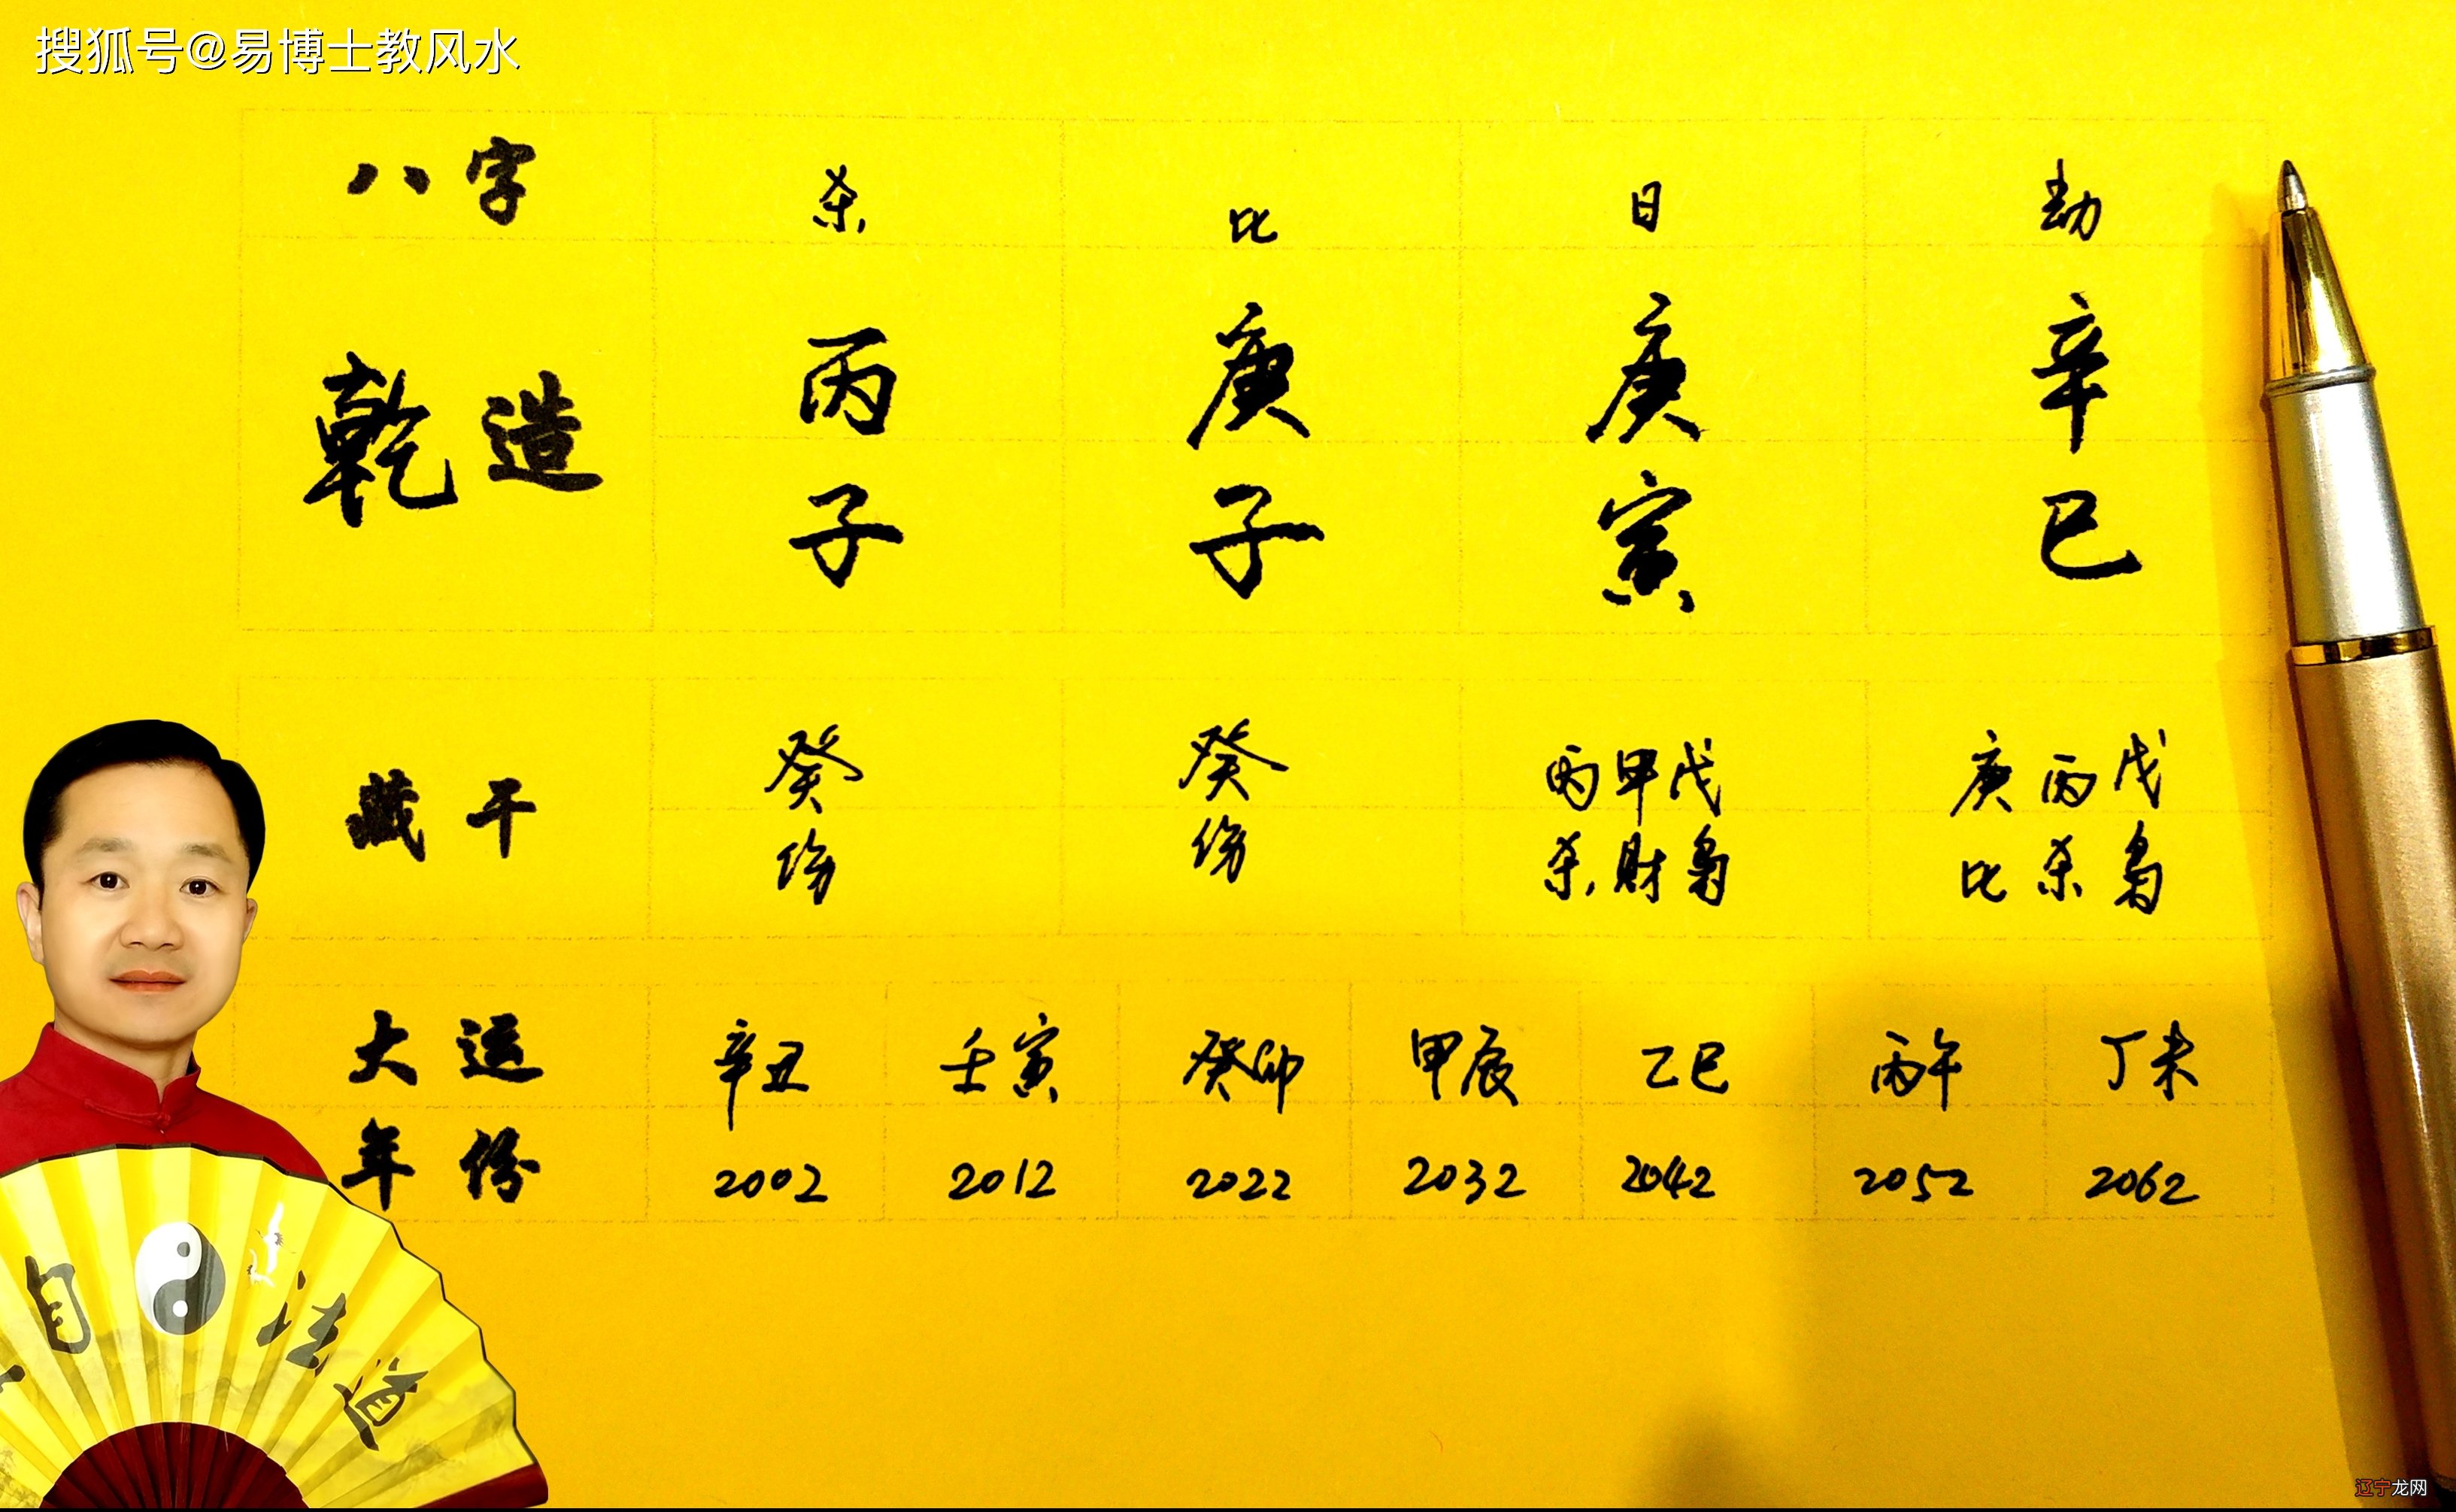 搜狐号@易博士教风水
八字 杀 比 日 劫
乾造 丙 庚 庚 辛
子 子 寅 巳
藏干 癸 癸 丙甲戊 庚丙戊
伤 伤 杀财枭 比杀枭
大运 辛丑 壬寅 癸卯 甲辰 乙巳 丙午 丁未
年份 2002 2012 2022 2032 2042 2052 2062
自 法 道
辽宁龙网